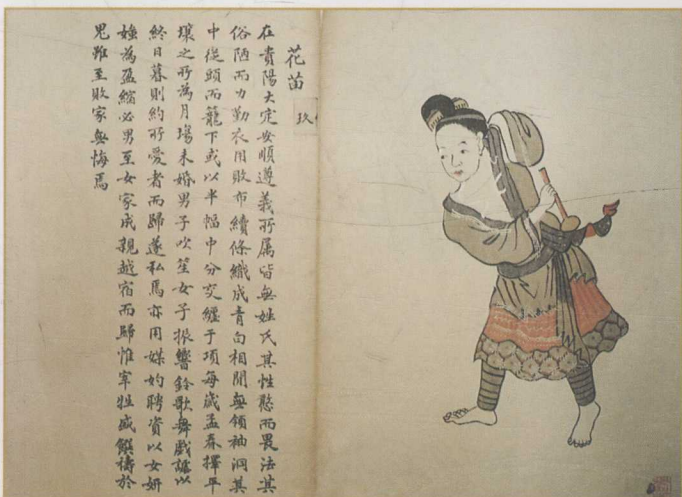 花苗
玖
在貴陽大定安順遵義所屬皆無姓氏其性憨而畏法其
俗陋而力勤衣用敗布績條織成青白相間無領袖洞其
中從頭而籠下或以半幅中分交纏于項每歲孟春擇平
壤之所為月場未婚男子吹笙女子振響鈴歌舞戲謔以
終日暮則約所愛者而歸遂私焉亦用媒妁聘資以女妍
媸為盈縮必男至女家成親越宿而歸惟宰牲盛饌禱於
鬼雖至敗家無悔焉